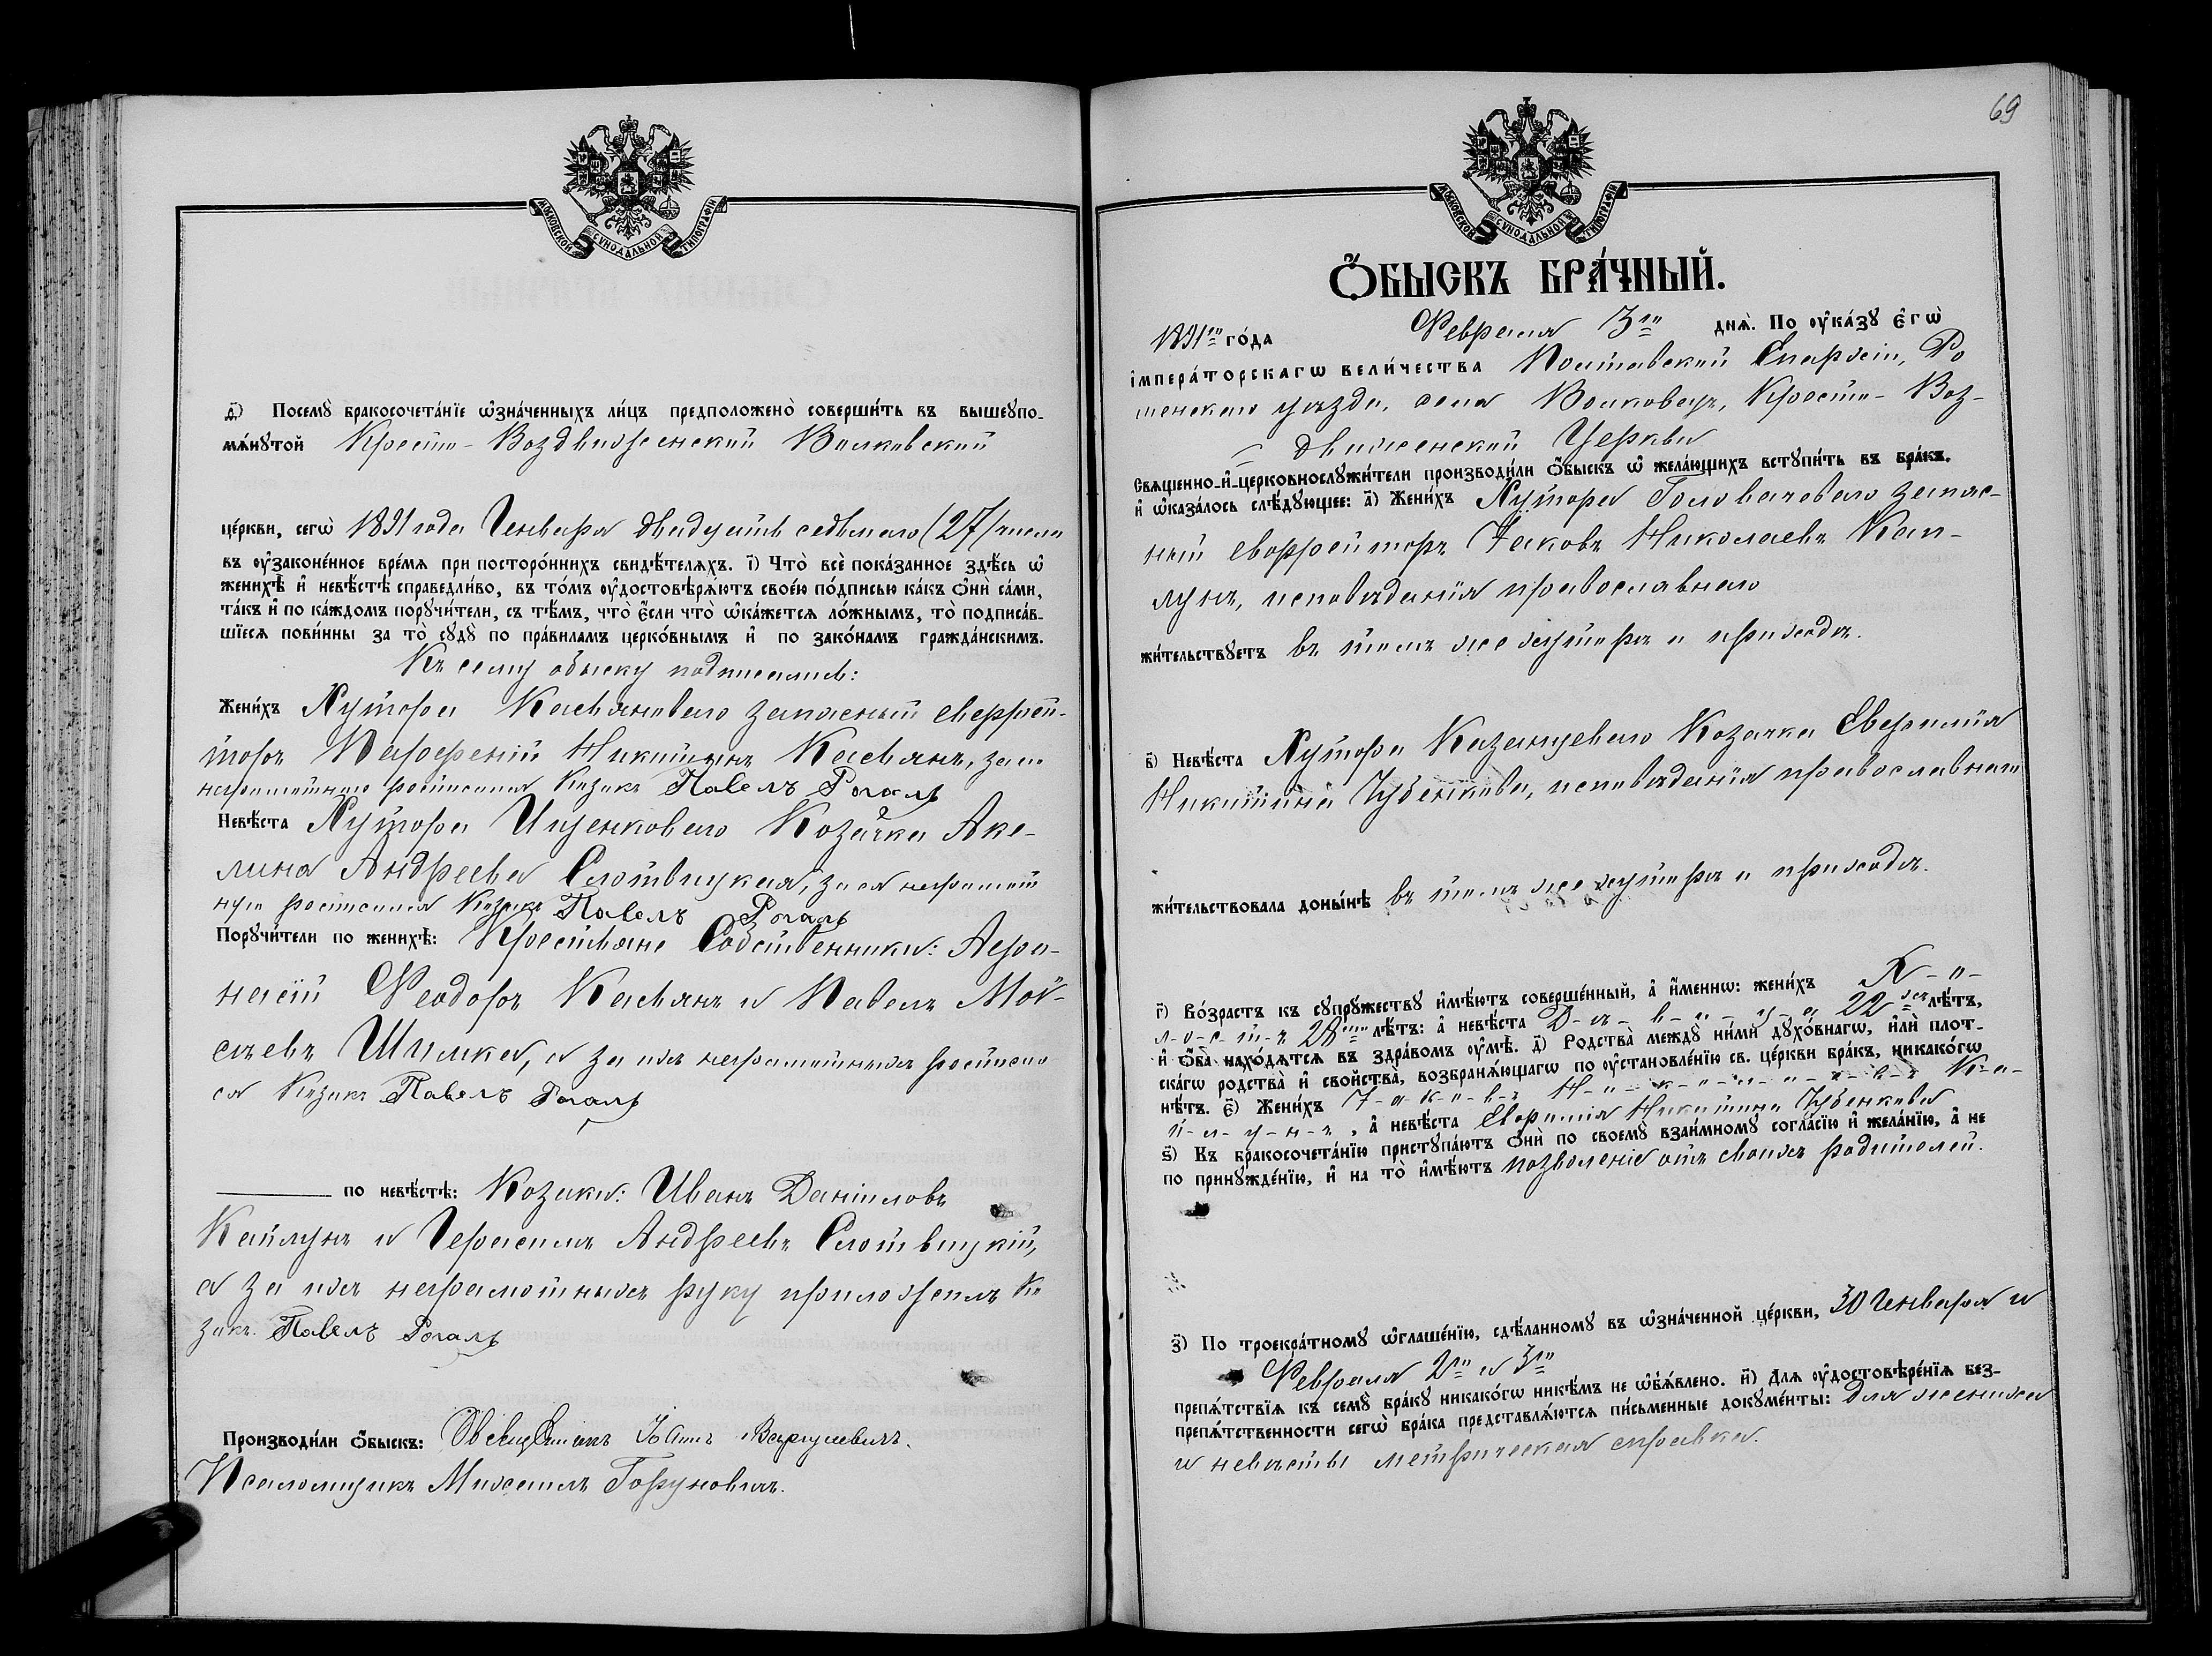 МОСКОВСКОЙ СѴНОДАЛЬНОЙ ТИПОГРАФІИ
д҃) Посемꙋ бракосочета́нїе ѡ҆зна́ченныхъ ли́цъ предположено̀ соверши́ть въ вышеꙋпо-
мѧ́нꙋтой Кресто-Воздвиженский Волковский
це́ркви, сегѡ̀ 1891 года Генваря двадцать седьмаго (27) числа
въ ᲂу҆законе́нное вре́мѧ при посторо́ннихъ свидѣ́телѧхъ. і҃) Что̀ всѐ пока́занное здѣ́сь ѡ҆
женихѣ̀ и҆ невѣ́стѣ справедли́во, въ то́мъ ᲂу҆достовѣрѧ́ютъ свое́ю по́дписью ка́къ ѻ҆нѝ са́ми,
та́къ и҆ по ка́ждомъ порꙋчи́тели, съ тѣ́мъ, что̀ є҆́сли что̀ ѡ҆ка́жетсѧ ло́жнымъ, то̀ подписа́в-
шїесѧ пови́нны за то̀ сꙋдꙋ̀ по пра́виламъ церко́внымъ и҆ по зако́намъ гражда́нскимъ.
Къ сему обыску подписались:
Жени́хъ Хутора Касьяноваго запасный евфрей-
торъ Парфеній Никитинъ Касьянъ, за н.
неграмотнаго росписался Козакъ Павелъ Рогаль
Невѣ́ста Хутора Ищенковаго Козачка Аке-
лина Андреева Слотвицкая, за ея неграмот
ную росписался Козакъ Павелъ Рогаль
Порꙋчи́тели по женихѣ̀: Крестьяне Собственники: Афа-
насій Феодоръ Касьянъ и Павелъ Мой-
сѣевъ Шимка, а за ихъ неграмотныхъ росписал
ся Козакъ Павелъ Рогаль
по невѣ́стѣ: Козаки: Иванъ Даніиловъ
Кайлунъ и Герасимъ Андреевъ Слотвицкій,
а за ихъ неграмотныхъ руку приложилъ Ко
закъ. Павелъ Рогаль
Производи́ли ѻ҆́быскъ: Священникъ Іоаннъ
Псаломщикъ Михаилъ Горуновичъ.
69
МОСКОВСКОЙ СѴНОДАЛЬНОЙ ТИПОГРАФІИ
Ѻ҆́БЫСКЪ БРА́ЧНЫЙ.
1891го го́да Февраля 3го днѧ̀. По ᲂу҆ка́зꙋ є҆гѡ̀
і҆мпера́торскагѡ вели́чества Полтавской Епархіи, Ро
менскаго уѣзда, села Волковецъ, Кресто-Воз-
движенской Церкви
Свѧщенно-и҆-церковнослꙋжи́тели производи́ли ѻ҆́быскъ ѡ҆ жела́ющихъ встꙋпи́ть въ бра́къ.
и҆ ѡ҆каза́лось слѣ́дꙋющее: а҃) Жени́хъ Хутора Головачеваго запас-
ный евфрейторъ Іаковъ Николаевъ Кай-
лунъ, исповѣданія православнаго
жи́тельствꙋетъ въ томъ же хуторѣ и приходѣ.
в҃) Невѣ́ста Хутора Казанцеваго Козачка Евфимія
Никитина Губенкова, исповѣданія православнаго
жи́тельствовала доны́нѣ въ томъ же хуторѣ и приходѣ.
г҃) Во́зрастъ къ сꙋпрꙋ́жествꙋ и҆мѣ́ютъ соверше́нный, а҆ и҆́меннѡ: жени́хъ Х-о-
л-о-с-т-ъ 28ми лѣ́тъ: а҆ невѣ́ста Д-ѣ-в-и-ц-а 22хъ лѣ́тъ,
и҆ ѻ҆́ба нахо́дѧтсѧ въ здра́вомъ ᲂу҆мѣ̀. д҃) Родства̀ междꙋ̀ ни́ми дꙋхо́внагѡ, и҆лѝ плот-
ска́гѡ родства̀ и҆ сво́йства, возбранѧ́ющагѡ по ᲂу҆становле́нїю св. це́ркви бра́къ, никако́гѡ
нѣ́тъ. є҃) Жени́хъ І-а-к-о-в-ъ Н-и-к-о-л-а-е-в-ъ К-а-
й-л-у-н-ъ, а҆ невѣ́ста Евфимія Никитина Губенкова
ѕ҃) Къ бракосочета́нїю пристꙋпа́ютъ ѻ҆нѝ по своемꙋ̀ взаи́мномꙋ согла́сїю и҆ жела́нїю, а҆ не
по принꙋжде́нїю, и҆ на то̀ и҆мѣ́ютъ позволеніе отъ своихъ родителей.
з҃) По троекра́тномꙋ ѡ҆глаше́нїю, сдѣ́ланномꙋ въ ѡ҆зна́ченной це́ркви, 30 Генваря и
Февраля 2го и 3го
препѧ́тствїѧ къ семꙋ̀ бра́кꙋ никако́гѡ никѣ́мъ не ѡ҆б̾ѧ́влено. и҃) Длѧ ᲂу҆достовѣре́нїѧ без-
препѧ́тственности сегѡ̀ бра́ка представлѧ́ютсѧ пи́сьменные докꙋме́нты: Для жениха
и невѣсты метрическая справка.